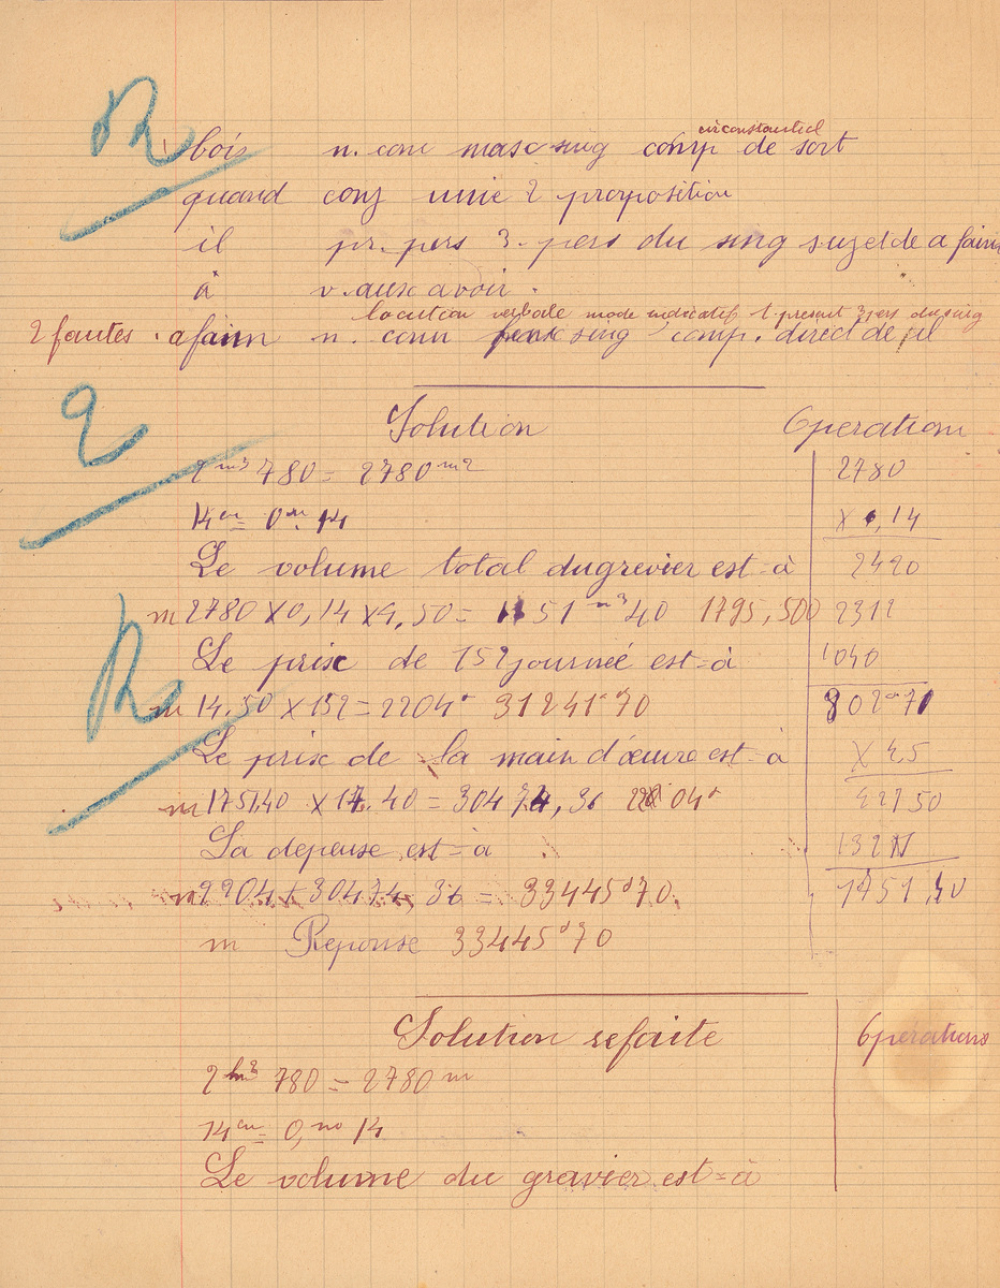 circonstanciel
bois n. com masc sing comp de sort
quand conj unie 2 proposition
il pr. pers 3. pers du sing sujet de a faim
a v. aux avoir.
locution verbale mode indicatif t. present 3 pers du sing
2 fautes. a faim n. com sing comp. direct de il
2
Solution Operation
2 m3 780 = 2780 m2 2780
14 cm = 0 m. 14 X 0,14
Le volume total du grevier est=à 2420
m 2780 X 0,14 X 4,50 = 1151 m3 40 1795,500 2312
Le prix de 152 journée est=à 1040
m 14.50 X 152 = 2204 f 31241 f 70 802 m 71
Le prix de la main d'œuvre est=à X 4,5
m 1751,40 X 17.40 = 30474,36 2204 f 42750
La depense est=à
m 2204 + 30474,36 = 33445 f 70. 1751,40
m Reponse 33445 f 70
Solution refaite Operations
2 hm3 780 = 2780 m
14 cm = 0, m 14
Le volume du gravier est=à